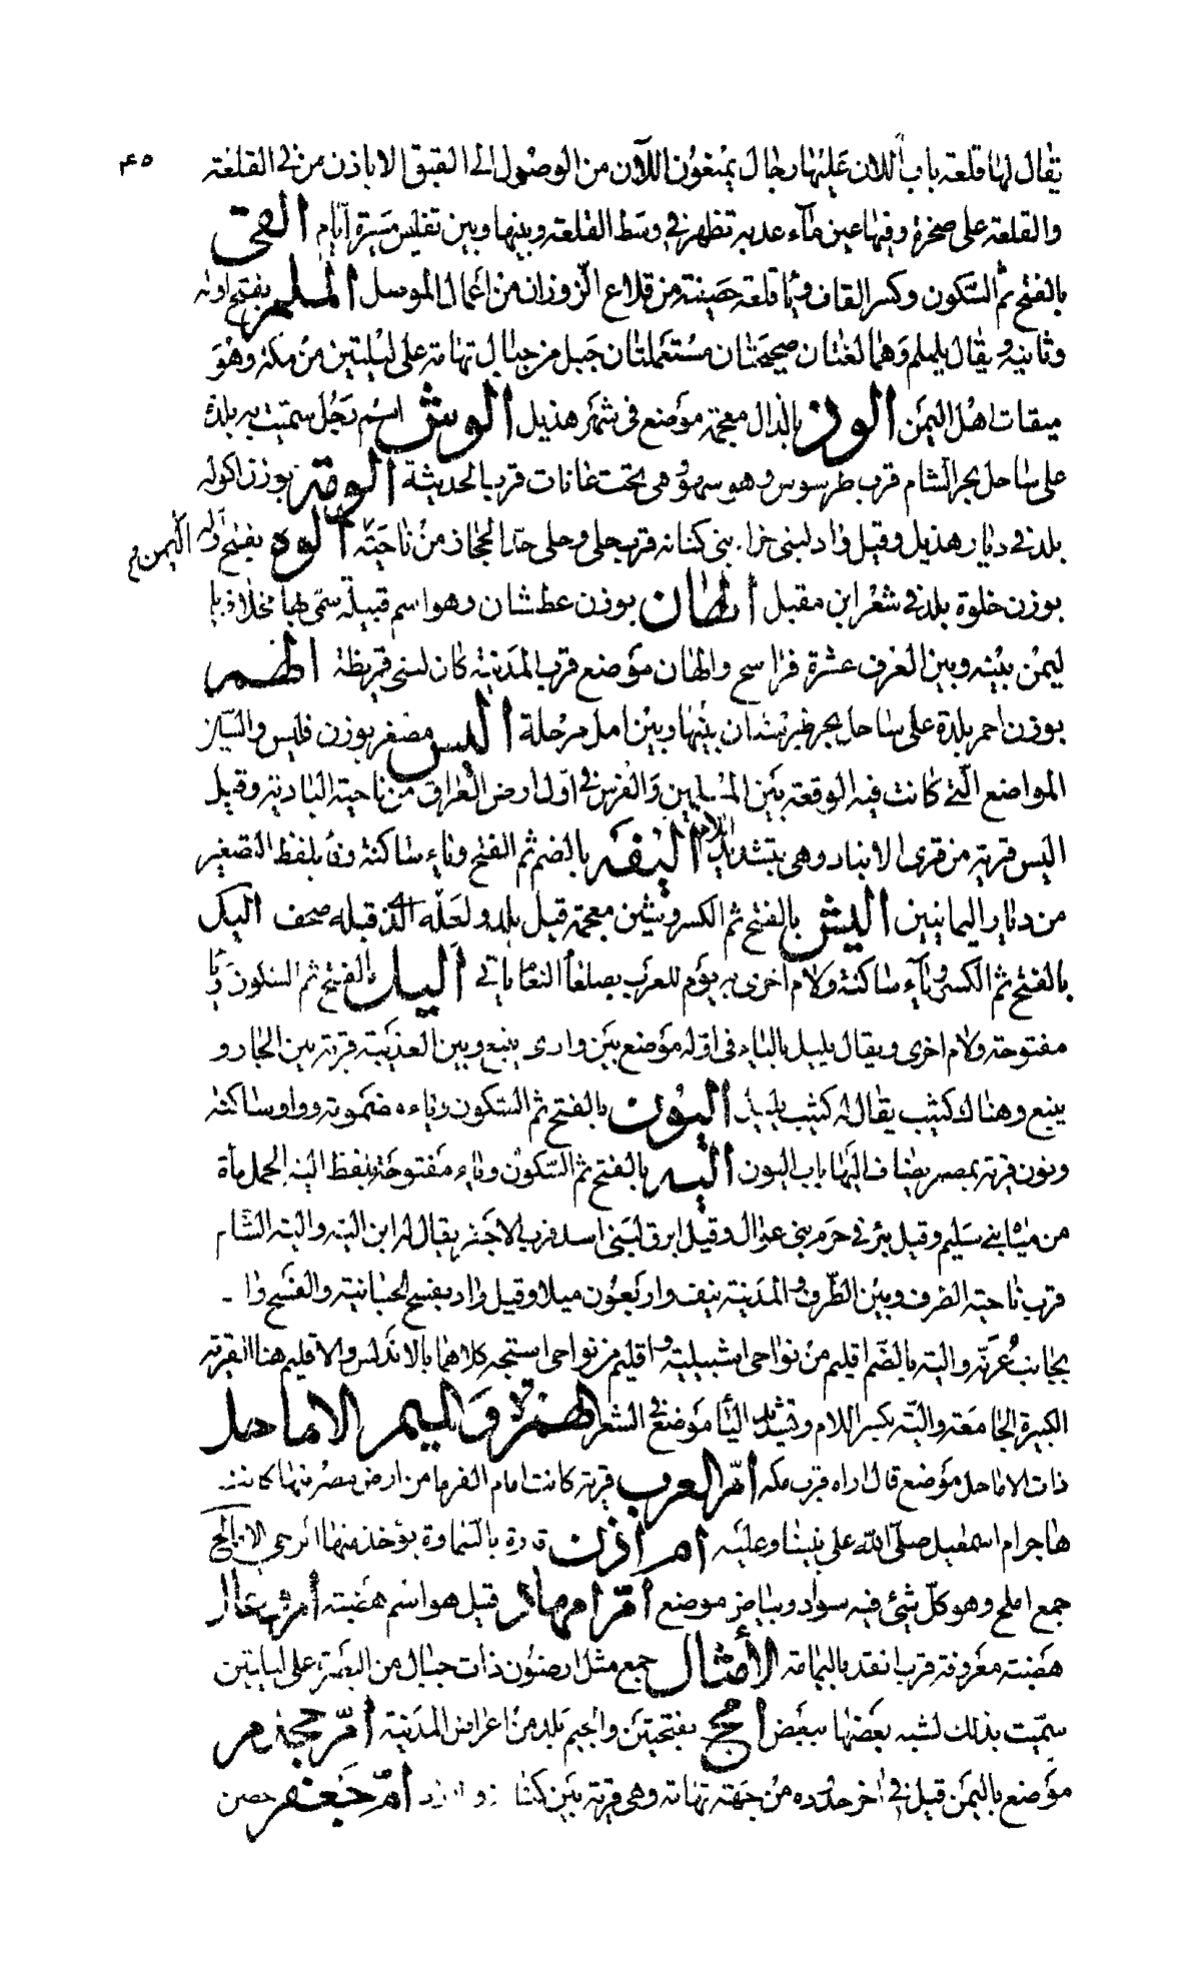 ٤٥
يقال لها قلعة باب اللان عليها رجال يمنعون اللآن من الوصول الى القبق الا باذن من في القلعة
والقلعة على صخرة وفيها عين مآء عذبه تظهر في وسط القلعة وبينها وبين تفليس مسيرة ايام القى
بالفتح ثم السكون وكسر القاف ويا قلعة حصينة من قلاع الزوزان من اعمال الموصل الملم بفتح اوله
وثانيه ويقال يلملم وهما لغتان صحيحتان مستعملتان جبل من جبال تهامة على ليلتين من مكة وهو
ميقات اهل اليمن الوذ بالذال معجمة موضع في شعر هذيل الوش اسم رجل سميت به بلدة
على ساحل بحر الشام قرب طرسوس وهو سهو وهي تحت عانات قرب الحديثة الومة بوزن اكولة
بلد في ديار هذيل وقيل واد لبني حرا. بني كنانة قرب حلي وحلي حد الحجاز من ناحية الوه بفتح اوله اليمن
بوزن خلوة بلد في شعر ابن مقبل الهان بوزن عطشان وهو اسم قبيلة سمي بها مخلاف با
ليمن بينه وبين العرف عشرة فراسخ والهان موضع قرب المدينة كان لبني قريظة الهم
بوزن احمر بلدة على ساحل بحر طبرستان بينها وبين امل مرحلة اليس مصغر بوزن فليس والسين
المواضع التي كانت فيه الوقعة بين المسلمين والفرس في اول ارض العراق من ناحية البادية وقيل
اليس قرية من قرى الانبار وهي بتشديد اللام اليفة بالضم ثم الفتح وياء ساكنة وفا بلفظ التصغير
من ديار اليمانيين اليش بالفتح ثم الكسر وشين معجمة قيل بلد ولعله الذي قبله صحف اليل
بالفتح ثم الكسر وياء ساكنة ولام اخرى به يوم للعرب بصلعا النعام ياتي اليل بالفتح ثم السكون ويا
مفتوحة ولام اخرى ويقال يليل بالياء في اوله موضع بين وادي ينبع وبين العذيبة قرية بين الجار و
ينبع وهناك كثيب يقال له كثيب يليل اليون بالفتح ثم السكون وياء مضمومة وواو ساكنة
ونون قرية بمصر يضاف اليها باب اليون اليه بالفتح ثم السكون وياء مفتوحة بلفظ الية الحمل مأة
من مياه بني سليم وقيل بئر في حرم بني عوال وقيل ابرق لبني اسد قرب الاجفر يقال له ابن الية والية الشام
قرب ناحية الطرف وبين الطرف والمدينة نيف واربعون ميلا وقيل واد بفسح الجبانية والفسح وا
بجانب عرنة والية بالضم اقليم من نواحي اشبيلية واقليم من نواحي استجه كلاهما بالاندلس والاقليم هنا القرية
الكبيرة الجامعة والية بكسر اللام وتشديد اليا موضع في الشعر الهمزة والميم الاماحل
ذات الاماحل موضع قال اراه قرب مكه ام العرب قرية كانت امام الفرما من ارض مصر منها كانت
هاجر ام اسمعيل صلى الله على نبينا وعليه ام اذن قدرة بالسماوة يؤخذ منها الرحى الاملح
جمع املح وهو كل شئ فيه سواد وبياض موضع ام امهار قيل هو اسم هضبة ام اوعال
هضبة معروفة قرب انقد باليمامة الأمثال جمع مثل ارضون ذات جبال من البصرة على ليلتين
سميت بذلك لشبه بعضها ببعض امج بفتحتين والجيم بلد من اعراض المدينة ام جحدم
موضع باليمن قيل في اخر حدوده من جهة تهامة وهي قرية بين كنانة والازد ام جعفر حصن